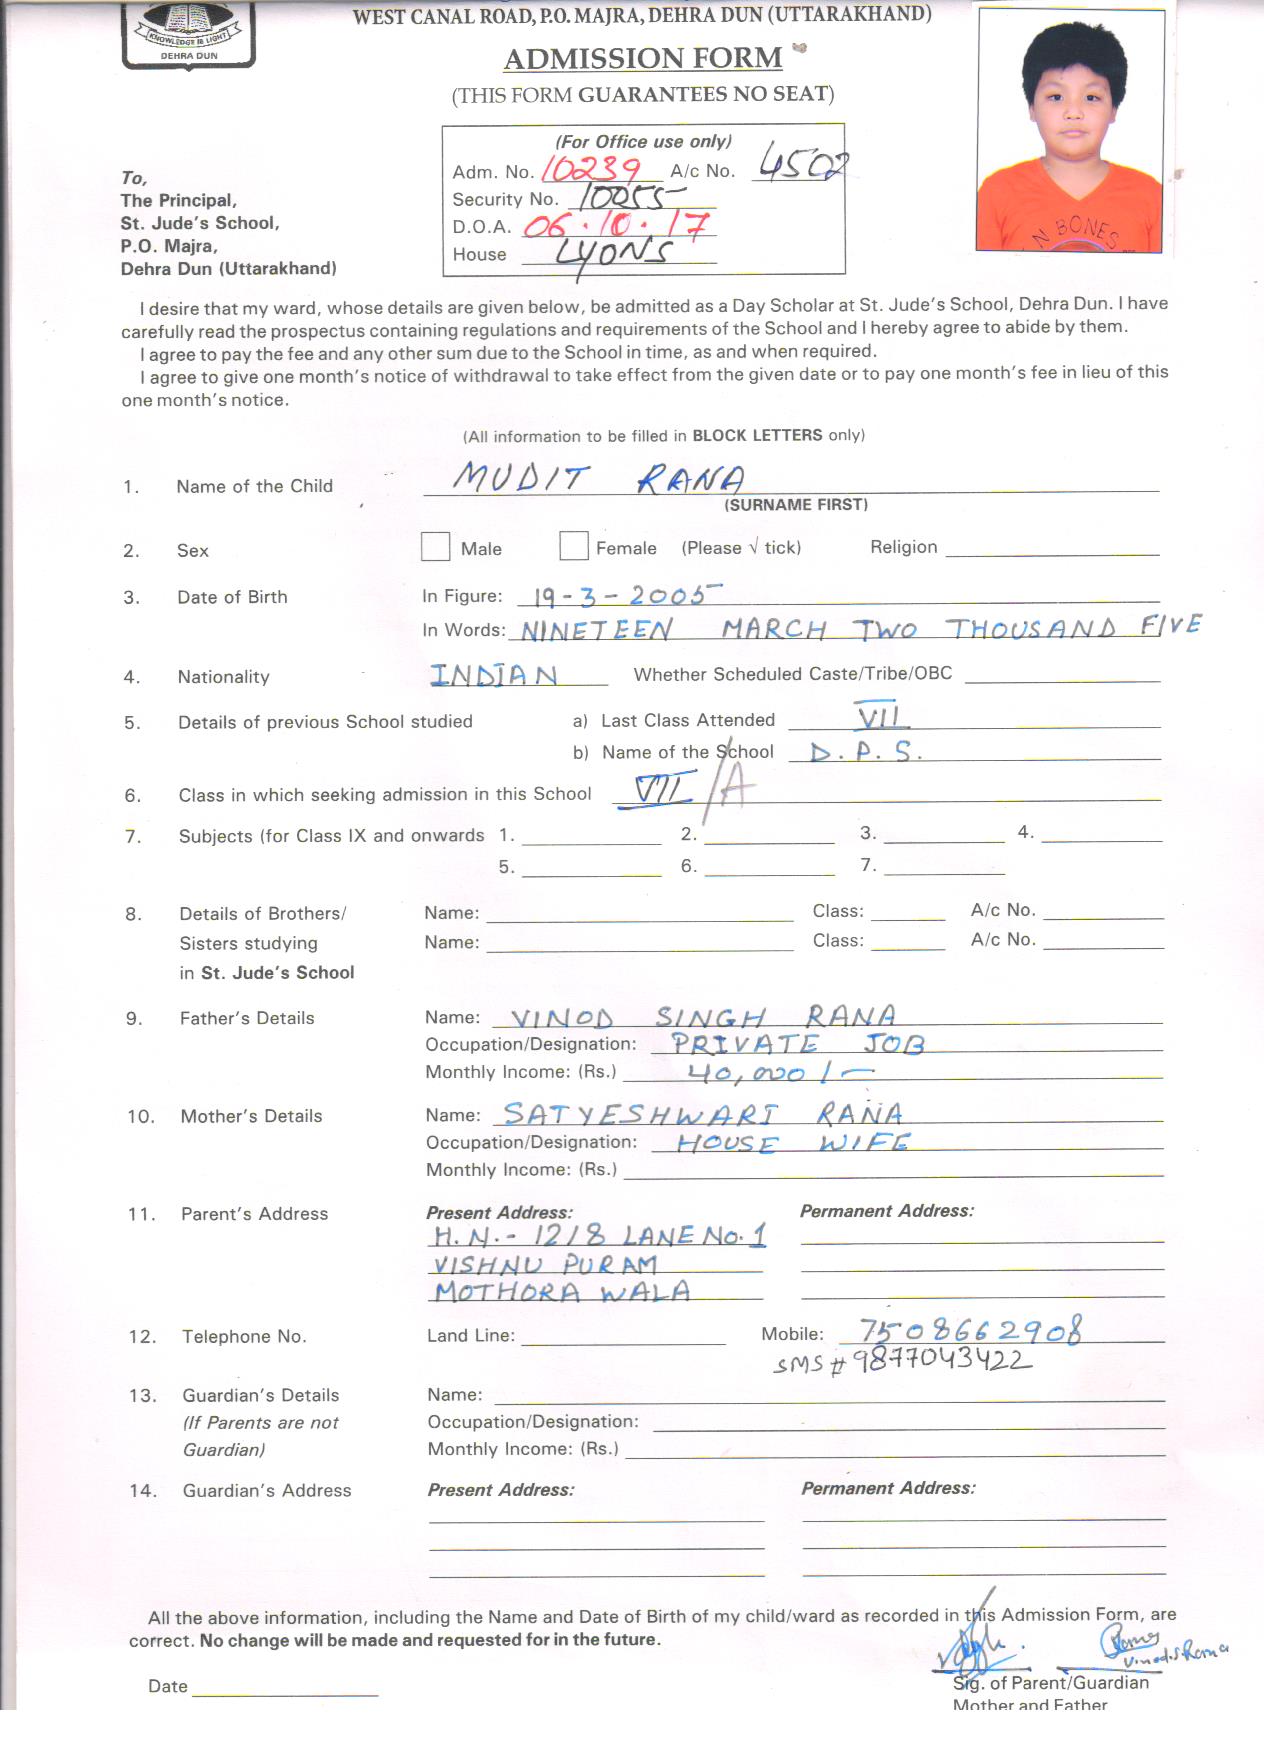 KNOWLEDGE IS LIGHT
DEHRA DUN
WEST CANAL ROAD, P.O. MAJRA, DEHRA DUN (UTTARAKHAND)
ADMISSION FORM
(THIS FORM GUARANTEES NO SEAT)
(For Office use only)
Adm. No. 10239 A/c No. 4502
Security No. 10255
D.O.A. 06.10.17
House LYONS
To,
The Principal,
St. Jude's School,
P.O. Majra,
Dehra Dun (Uttarakhand)
N BONES
I desire that my ward, whose details are given below, be admitted as a Day Scholar at St. Jude's School, Dehra Dun. I have
carefully read the prospectus containing regulations and requirements of the School and I hereby agree to abide by them.
I agree to pay the fee and any other sum due to the School in time, as and when required.
I agree to give one month's notice of withdrawal to take effect from the given date or to pay one month's fee in lieu of this
one month's notice.
(All information to be filled in BLOCK LETTERS only)
1. Name of the Child MUDIT RANA
(SURNAME FIRST)
2. Sex Male Female (Please √ tick) Religion
3. Date of Birth In Figure: 19-3-2005
In Words: NINETEEN MARCH TWO THOUSAND FIVE
4. Nationality INDIAN Whether Scheduled Caste/Tribe/OBC
5. Details of previous School studied a) Last Class Attended VII
b) Name of the School D.P.S.
6. Class in which seeking admission in this School VII /A
7. Subjects (for Class IX and onwards 1. 2. 3. 4.
5. 6. 7.
8. Details of Brothers/ Name: Class: A/c No.
Sisters studying Name: Class: A/c No.
in St. Jude's School
9. Father's Details Name: VINOD SINGH RANA
Occupation/Designation: PRIVATE JOB
Monthly Income: (Rs.) 40,000/-
10. Mother's Details Name: SATYESHWARI RANA
Occupation/Designation: HOUSE WIFE
Monthly Income: (Rs.)
11. Parent's Address Present Address: Permanent Address:
H.N.- 121/8 LANE No. 1
VISHNU PURAM
MOTHORA WALA
12. Telephone No. Land Line: Mobile: 7508662908
SMS # 9877043422
13. Guardian's Details Name:
(If Parents are not Occupation/Designation:
Guardian) Monthly Income: (Rs.)
14. Guardian's Address Present Address: Permanent Address:
All the above information, including the Name and Date of Birth of my child/ward as recorded in this Admission Form, are
correct. No change will be made and requested for in the future.
Date
Sig. of Parent/Guardian
Mother and Father